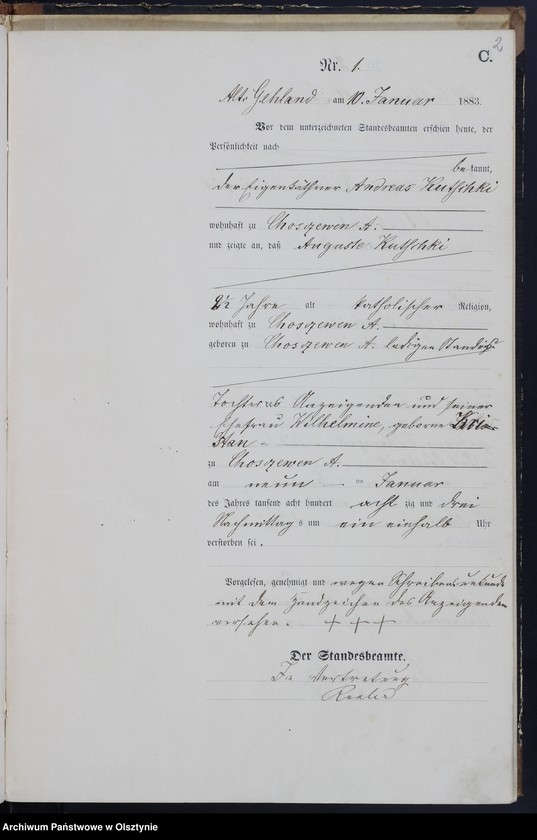 2
C.
Nr. 1.
Alt Gehland am 10. Januar 1883.
Vor dem unterzeichneten Standesbeamten erschien heute, der
Persönlichkeit nach
bekannt,
der Eigenkäthner Andreas Kutschki
wohnhaft zu Choszewen A.
und zeigte an, daß Auguste Kutschki
2½ Jahre alt katholischer Religion,
wohnhaft zu Choszewen A.
geboren zu Choszewen A. ledigen Standes
Tochter des Anzeigenden und seiner
Ehefrau Wilhelmine, geborne
zu Choszewen A.
am neun im Januar
des Jahres tausend acht hundert acht zig und drei
Nachmittags um ein einhalb Uhr
verstorben sei.
Vorgelesen, genehmigt und wegen Schreibensunkunde
mit dem Handzeichen des Anzeigenden
versehen. +++
Der Standesbeamte.
In Vertretung
Archiwum Państwowe w Olsztynie